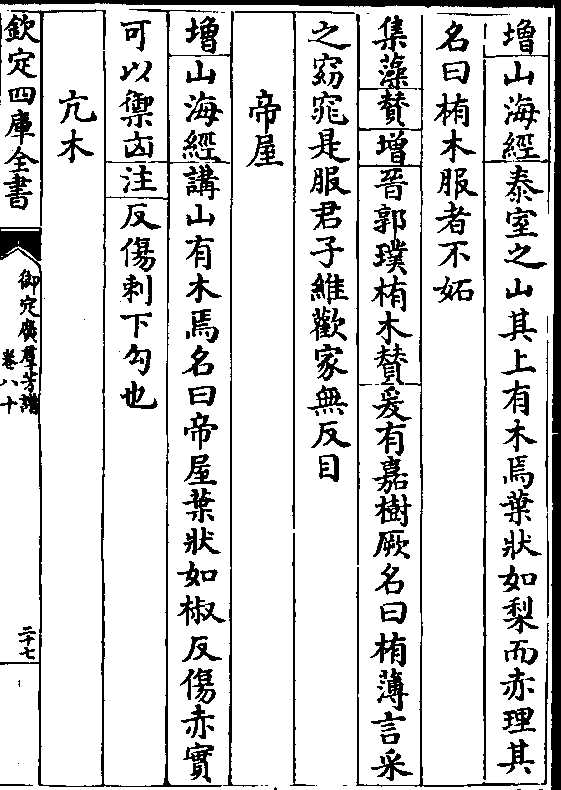 增山海經泰室之山其上有木焉葉狀如梨而赤理其
名曰栯木服者不妬
集藻賛增晉郭璞栯木賛爰有嘉樹厥名曰栯薄言采
之窈窕是服君子維歡家無反目
帝屋
增山海經講山有木焉名曰帝屋葉狀如椒反傷赤實
可以禦凶注反傷刺下勾也
亢木
欽定四庫全書
御定廣羣芳譜
卷八十
二十七